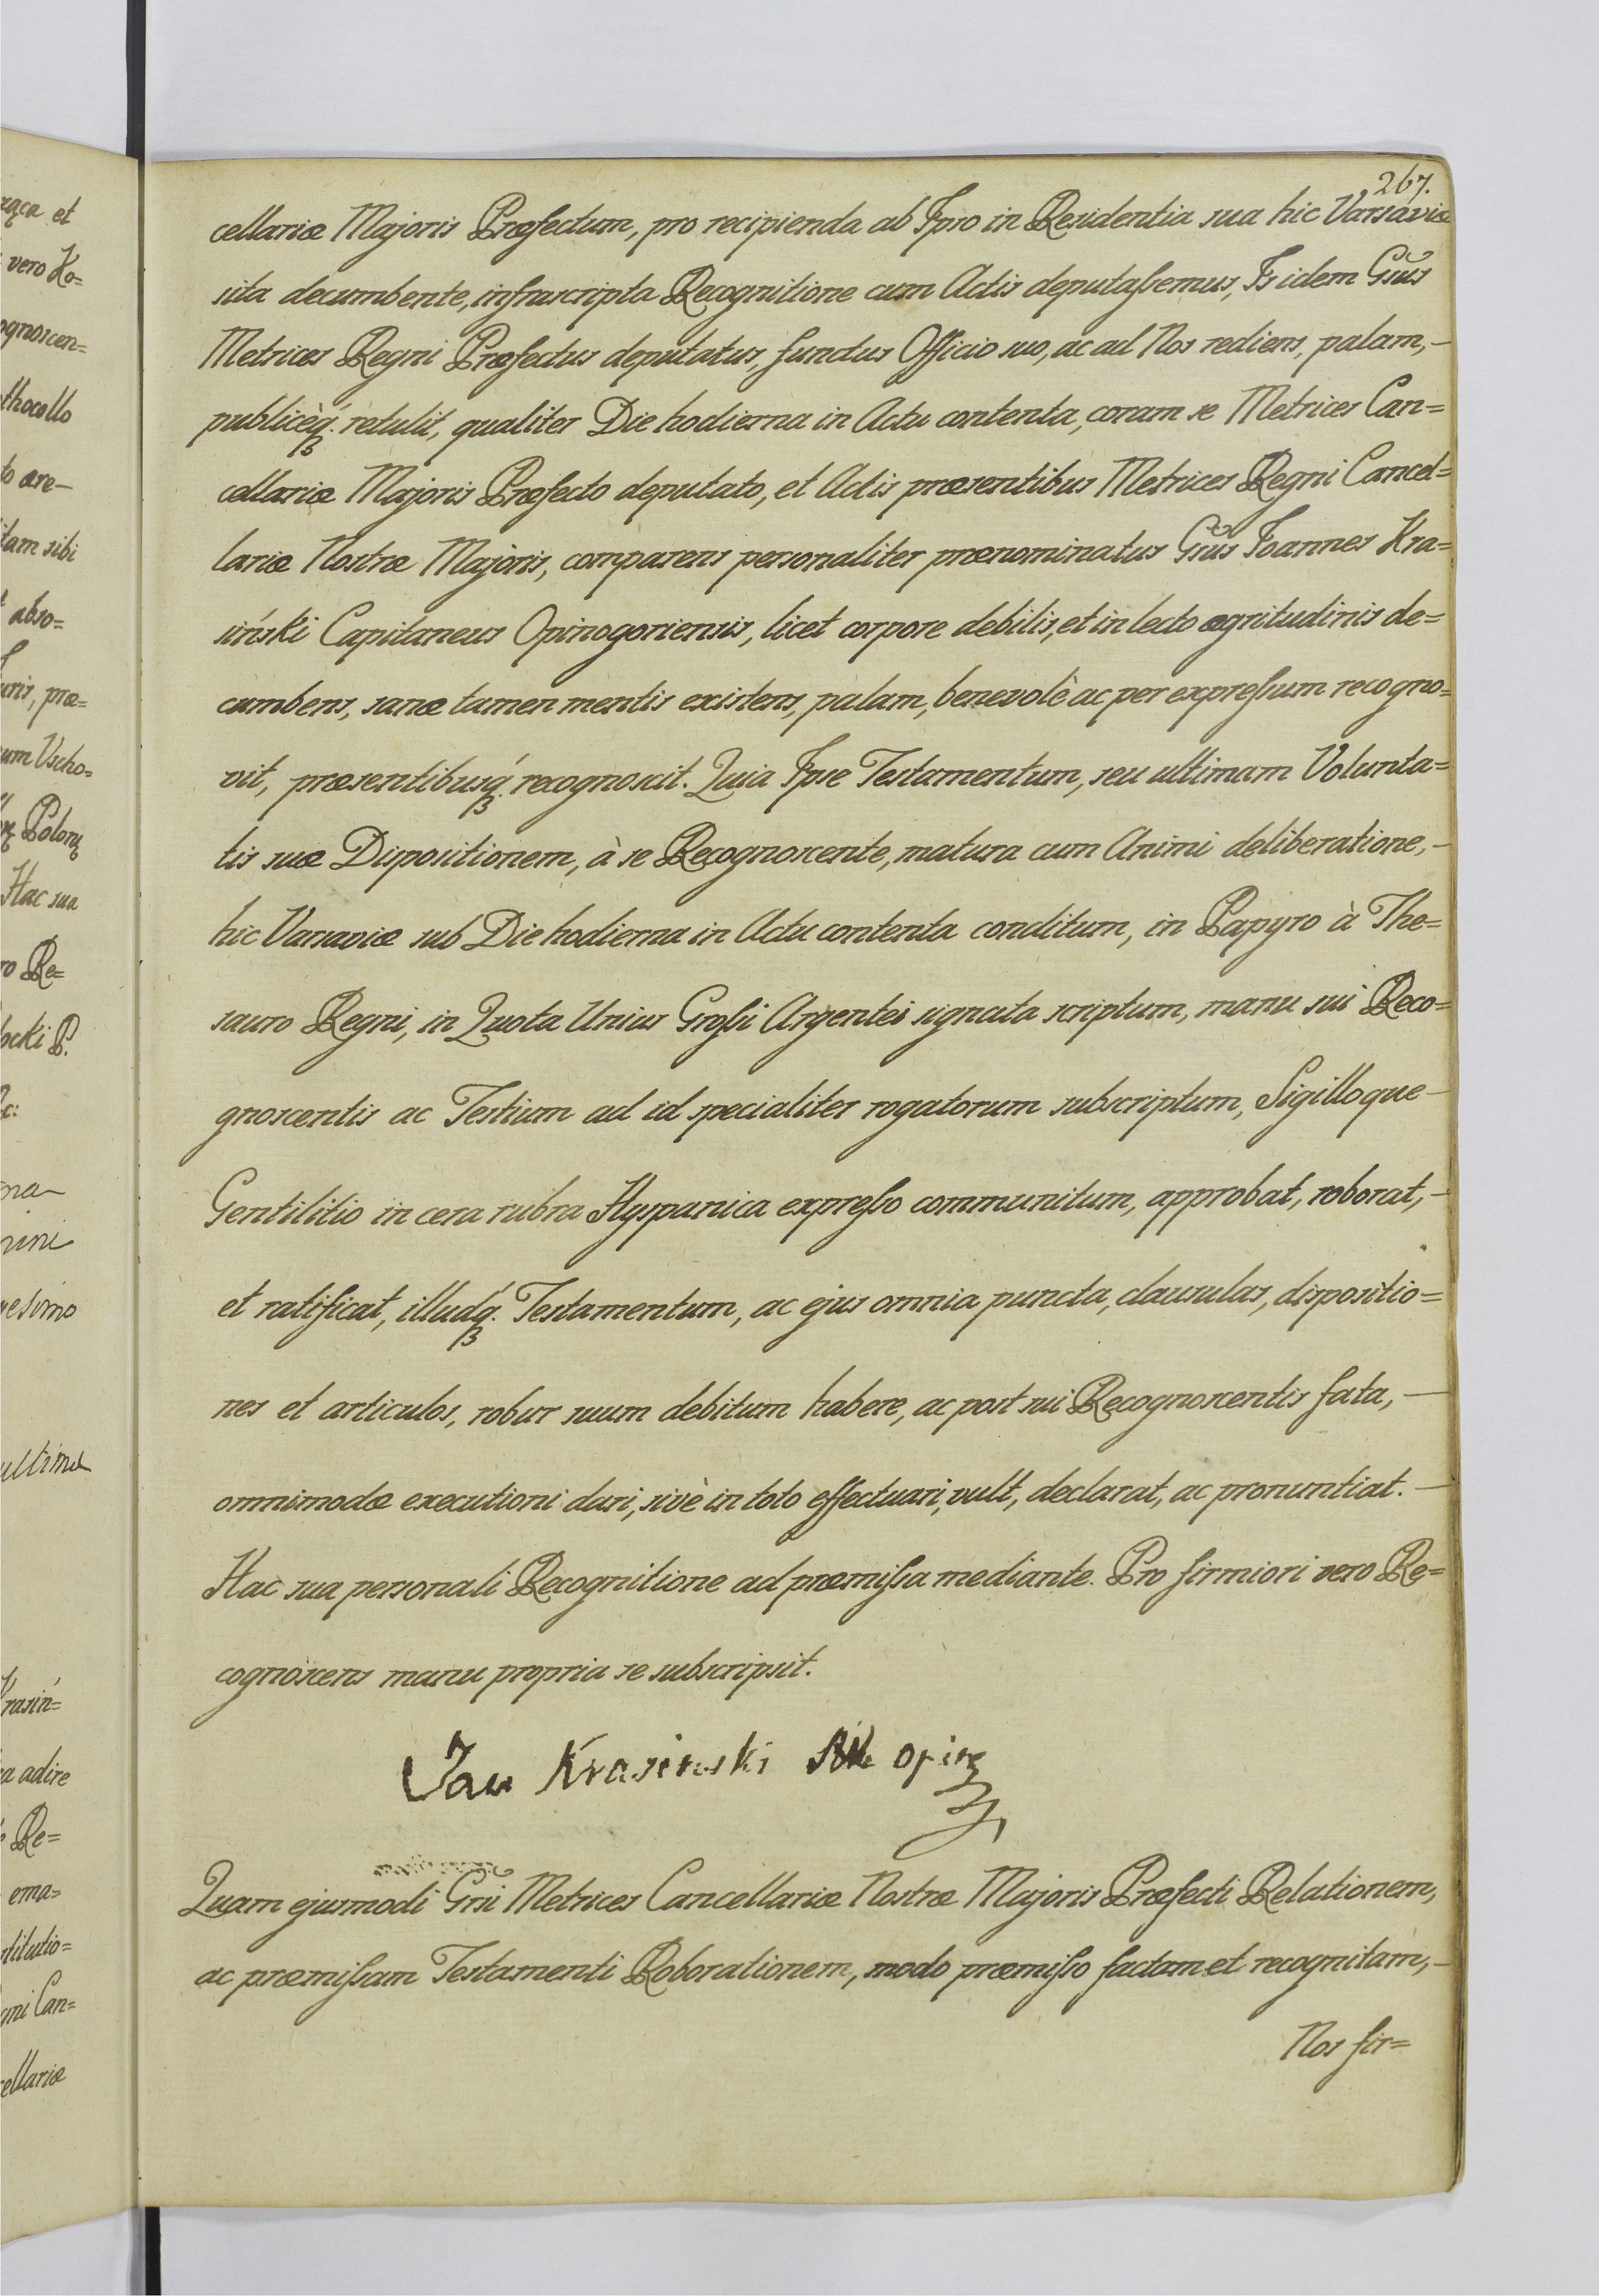 267.
cellariæ Majoris Præfectum, pro recipienda ab Ipso in Residentia sua hic Varsaviæ
sita decumbente, infrascripta Recognitione cum Actis deputaſsemus, Is idem Gsus
Metrices Regni Præfectus deputatus, functus Officio suo, ac ad Nos rediens, palam,-
publicèq́ꝫ. retulit, qualiter Die hodierna in Actu contenta, coram se Metrices Can=
cellariæ Majoris Præfecto deputato, et Actis præsentibus Metrices Regni Cancel=
lariæ Nostræ Majoris, comparens personaliter prænominatus Gsus Joannes Kra=
siński Capitaneus Opinogoriensis, licet corpore debilis, et in lecto ægritudinis de=
cumbens, sanæ tamen mentis existens, palam, benevolè ac per expreſsum recogno=
vit, præsentibusq́ꝫ. recognoscit. Quia Ipse Testamentum, seu ultimam Volunta=
tis suæ Dispositionem, à se Recognoscente, matura cum Animi deliberatione,-
hic Varsaviæ sub Die hodierna in Actu contenta conditum, in Papyro à The=
sauro Regni, in Quota Unius Groſsi Argentei signata scriptum, manu sui Reco=
gnoscentis ac Testium ad id specialiter rogatorum subscriptum, Sigilloque-
Gentilitio in cera rubra Hyspanica expreſso communitum, approbat, roborat,-
et ratificat, illudq́ꝫ. Testamentum, ac ejus omnia puncta, clausulas, dispositio=
nes et articulos, robur suum debitum habere, ac post sui Recognoscentis fata,-
omnimodæ executioni dari, sivè in toto effectuari, vult, declarat, ac pronuntiat.-
Hac sua personali Recognitione ad præmiſsa mediante. Pro firmiori vero Re=
cognoscens manu propria se subscripsit.
Jan Krasinski opin
Quam ejusmodi Gsi Metrices Cancellariæ Nostræ Majoris Præfecti Relationem,
ac præmiſsam Testamenti Roborationem, modo præmiſso factam et recognitam,-
Nos fir=